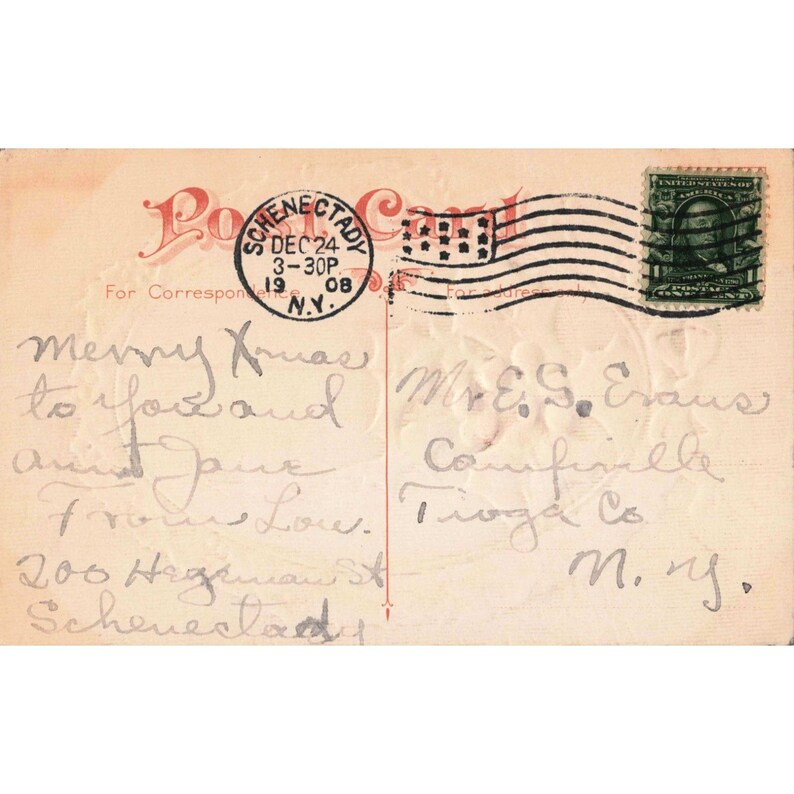 Post Card
SCHENECTADY
DEC 24
3-30P
19 08
N.Y.
SERIES 1902
UNITED STATES OF
AMERICA
1
1
FRANKLIN
POSTAGE
ONE CENT
For Correspondence
For address only
Merry Xmas
to you and
aunt Jane
From Lou.
200 Hegeman St
Schenectady
Mr E. S. Evans
Campville
Tioga Co
N. Y.